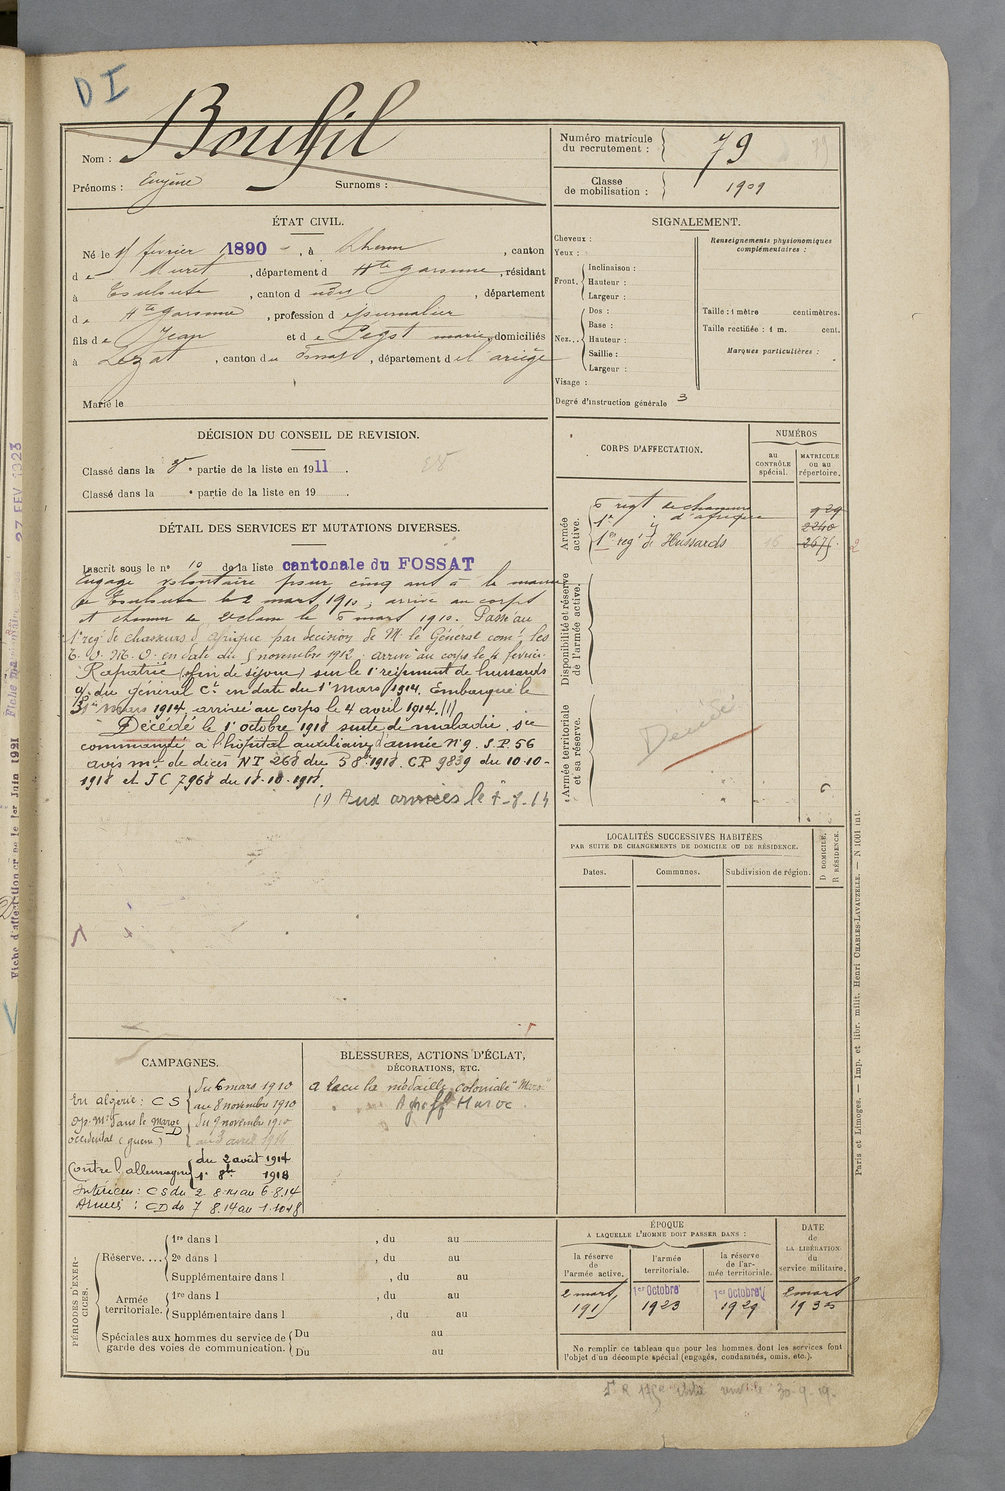 DI
Nom : Bouffil
Prénoms : Eugène Surnoms :
Numéro matricule du recrutement : 79
Classe de mobilisation : 1909
ÉTAT CIVIL.
Né le février 1890, à Lherm, canton
de Muret, département d Hte Garonne, résidant
à Toulouse, canton d udit, département
d Hte Garonne, profession d journalier
fils de Jean et de marie, domiciliés
à Lézat, canton du Fossat, département de l'ariège
Marié le
SIGNALEMENT.
Cheveux :
Yeux :
Front. Inclinaison :
Hauteur :
Largeur :
Nez... Dos :
Base :
Hauteur :
Saillie :
Largeur :
Visage :
Degré d'instruction générale 3
Renseignements physionomiques complémentaires :
Taille : 1 mètre centimètres.
Taille rectifiée : 1 m. cent.
Marques particulières :
DÉCISION DU CONSEIL DE REVISION.
Classé dans la e partie de la liste en 1911.
Classé dans la e partie de la liste en 19 .
DÉTAIL DES SERVICES ET MUTATIONS DIVERSES.
Inscrit sous le n° 10 de la liste cantonale du FOSSAT
Engagé volontaire pour cinq ans à la mairie
de Toulouse le 2 mars 1910, arrivé au corps
et le 6 mars 1910. Passé au
1er rég' de chasseurs d'afrique par décision de M. le Général comt les
T. O. M. O. en date du 5 novembre 1912. arrivé au corps le 4 février.
Rapatrié (fin de séjour) sur le 1er régiment de hussards
du Général Ct en date du 1er mars 1914. Embarqué le
31 mars 1914, arrivé au corps le 4 avril 1914. (1)
Décédé le 1er octobre 1918 suite de maladie s/ce
commandé à l'hôpital auxiliaire d'armée n° 9. S.P. 56
avis ml de décès NT 268 du 5 8bre 1918. CP 9839 du 10-10-
1918 et JC 7968 du 18-10-1918.
(1) Aux armées le 7-8-14
CORPS D'AFFECTATION.
NUMÉROS
au CONTRÔLE spécial.
MATRICULE ou au répertoire.
Armée active.
6 régt de chasseurs 929
1er d° d'afrique 2240
1er rég' de Hussards 16 2675
Disponibilité et réserve de l'armée active.
Armée territoriale et sa réserve.
Décédé
LOCALITÉS SUCCESSIVES HABITÉES
PAR SUITE DE CHANGEMENTS DE DOMICILE OU DE RÉSIDENCE.
Dates. Communes. Subdivision de région. D DOMICILE. R RÉSIDENCE.
CAMPAGNES.
En algérie : CS du 6 mars 1910
au 8 novembre 1910
op. Mres dans le maroc du 9 novembre 1910
occidental (guerre) CD au 3 avril
Contre l'allemagne du 2 août 1914
1er 8bre 1918
Intérieur : CS du 2.8.14 au 6.8.14
Armées : CD du 7.8.14 au 1.10.18
BLESSURES, ACTIONS D'ÉCLAT,
DÉCORATIONS, ETC.
a reçu la médaille coloniale "Maroc"
Agraff Maroc.
PÉRIODES D'EXERCICES.
Réserve.... 1re dans l , du au
2e dans l , du au
Supplémentaire dans l , du au
Armée territoriale. 1re dans l , du au
Supplémentaire dans l , du au
Spéciales aux hommes du service de garde des voies de communication. Du au
Du au
ÉPOQUE
A LAQUELLE L'HOMME DOIT PASSER DANS :
la réserve de l'armée active. l'armée territoriale. la réserve de l'armée territoriale.
DATE DE LA LIBÉRATION du service militaire.
2 mars 1915 1er Octobre 1923 1er Octobre 1929 2 mars 1935
Ne remplir ce tableau que pour les hommes dont les services font
l'objet d'un décompte spécial (engagés, condamnés, omis, etc.).
30-9-19.
Paris et Limoges. — Imp. et libr. milit. Henri CHARLES-LAVAUZELLE. — N 1001 int.